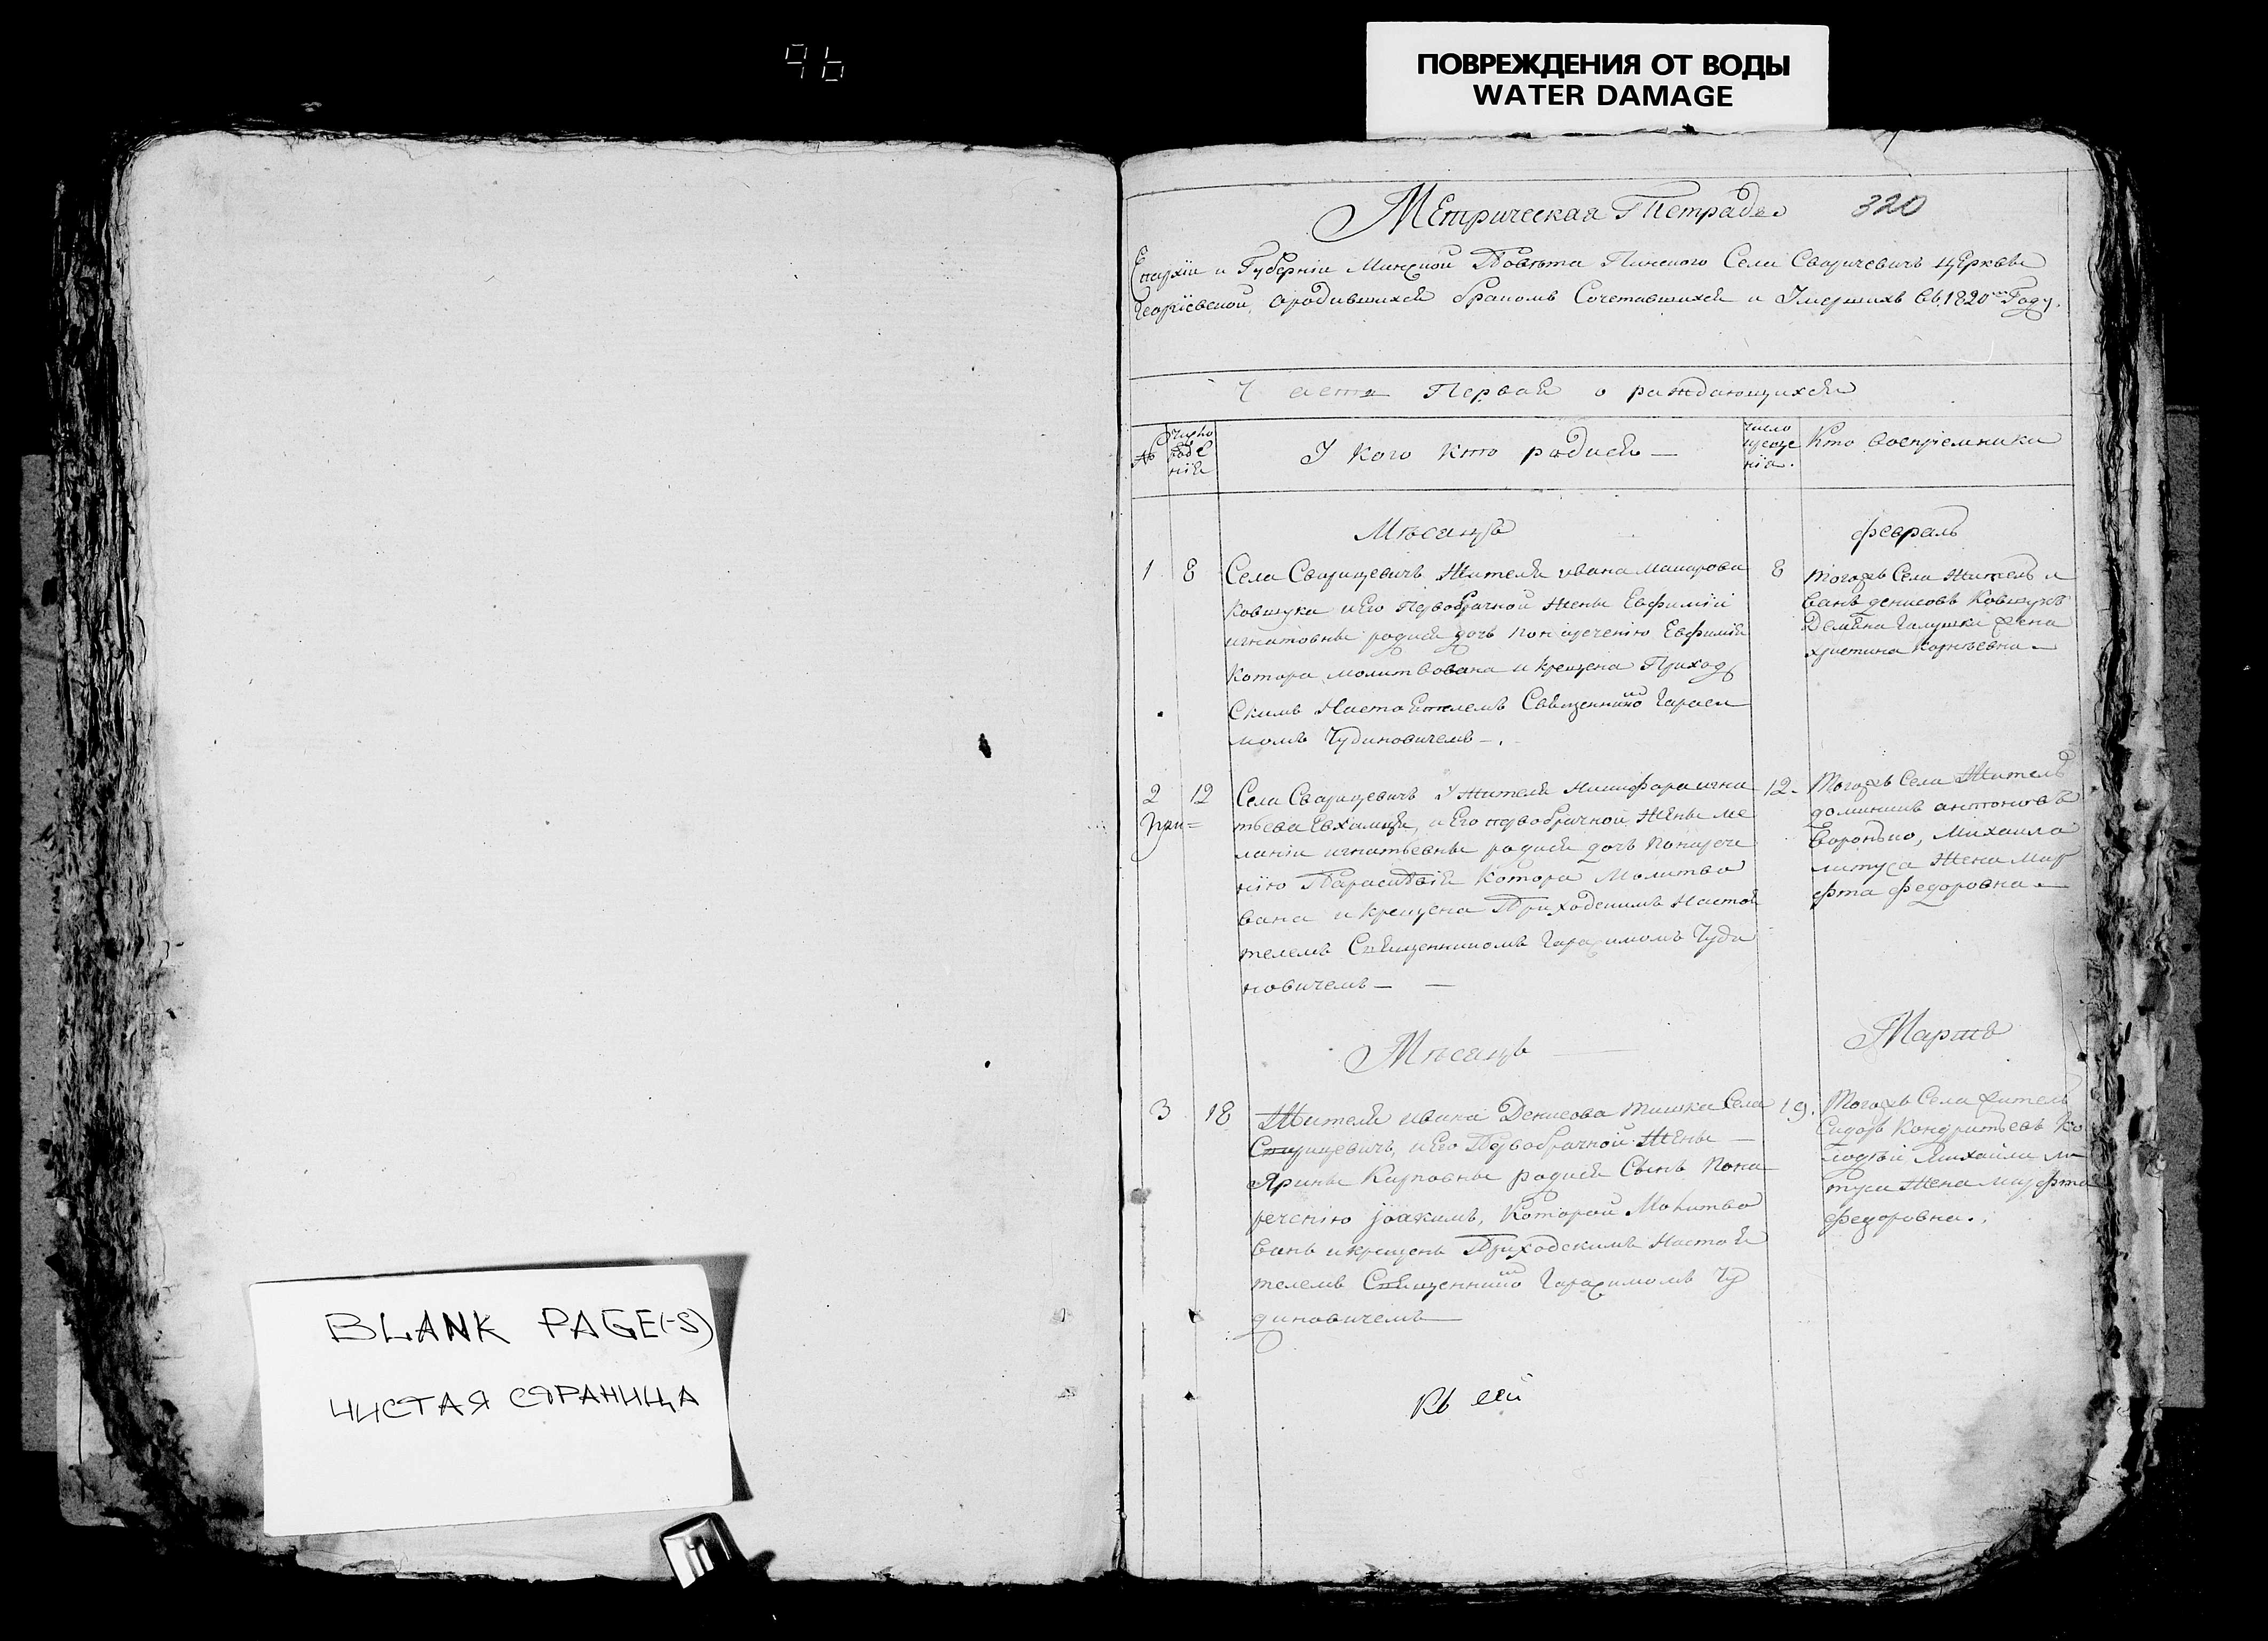 96
ПОВРЕЖДЕНИЯ ОТ ВОДЫ
WATER DAMAGE
BLANK PAGE(-S)
ЧИСТАЯ СТРАНИЦА
Метрическая Тетрадь 320
Епархіи и Губерніи Минской Повѣта Пинского Села Сваричевичъ Церквы
Георгіевской, ородившихся бракомъ Сочетавшихся и Умершихъ въ 1820м Году.
Часть Первая о раждающихся
№
Число
рожде
нія
У кого кто родися
число
креще
нія.
Кто воспріемники
Мѣсяцъ
февраль
1 8 Села Сварицевичъ Жителя ивана Макарова
Ковшука и Его Первобрачной Жены Евфиміи
игнатовны родися дочь понаречению Евфимія
Котора молитвована и крещена Приход
Скимъ Настоятелемъ Священнико Гараси
момъ Чудиновичемъ
8 тогожъ Села житель и
ванъ денисовъ Ковшукъ
Демяна Галушки жена
христина Корнѣевна
2 12 Села Сварицевичъ У Жителя Никифора игна
тьева, и Его первобрачной Жены Ме
ланіи игнатьевны родися дочь понарече
нію Парасковія Котора Молитво
вана и крещена Приходскимъ Настоя
телемъ Священникомъ Гарасимомъ Чуди
новичемъ
12. Тогожъ Села Житель
доминикъ антоновъ
Михаила
литуса Жена Мар
фта федоровна
Мѣсяцъ
Мартъ
3 18 Жителя ивана Денисова тишка Села
Сварицевичъ, и Его Первобрачной Жены
Ярины Карповны родися Сынъ Пона
речению Іоакимъ, Которой Молитво
ванъ и крещенъ Приходскимъ Настоя
телемъ Священнико Гарасимомъ Чу
диновичемъ
19. Тогожъ Села житель
Сидоръ Кондратьевъ Ко
Михайла ли
туса Жена Марфта
федоровна.